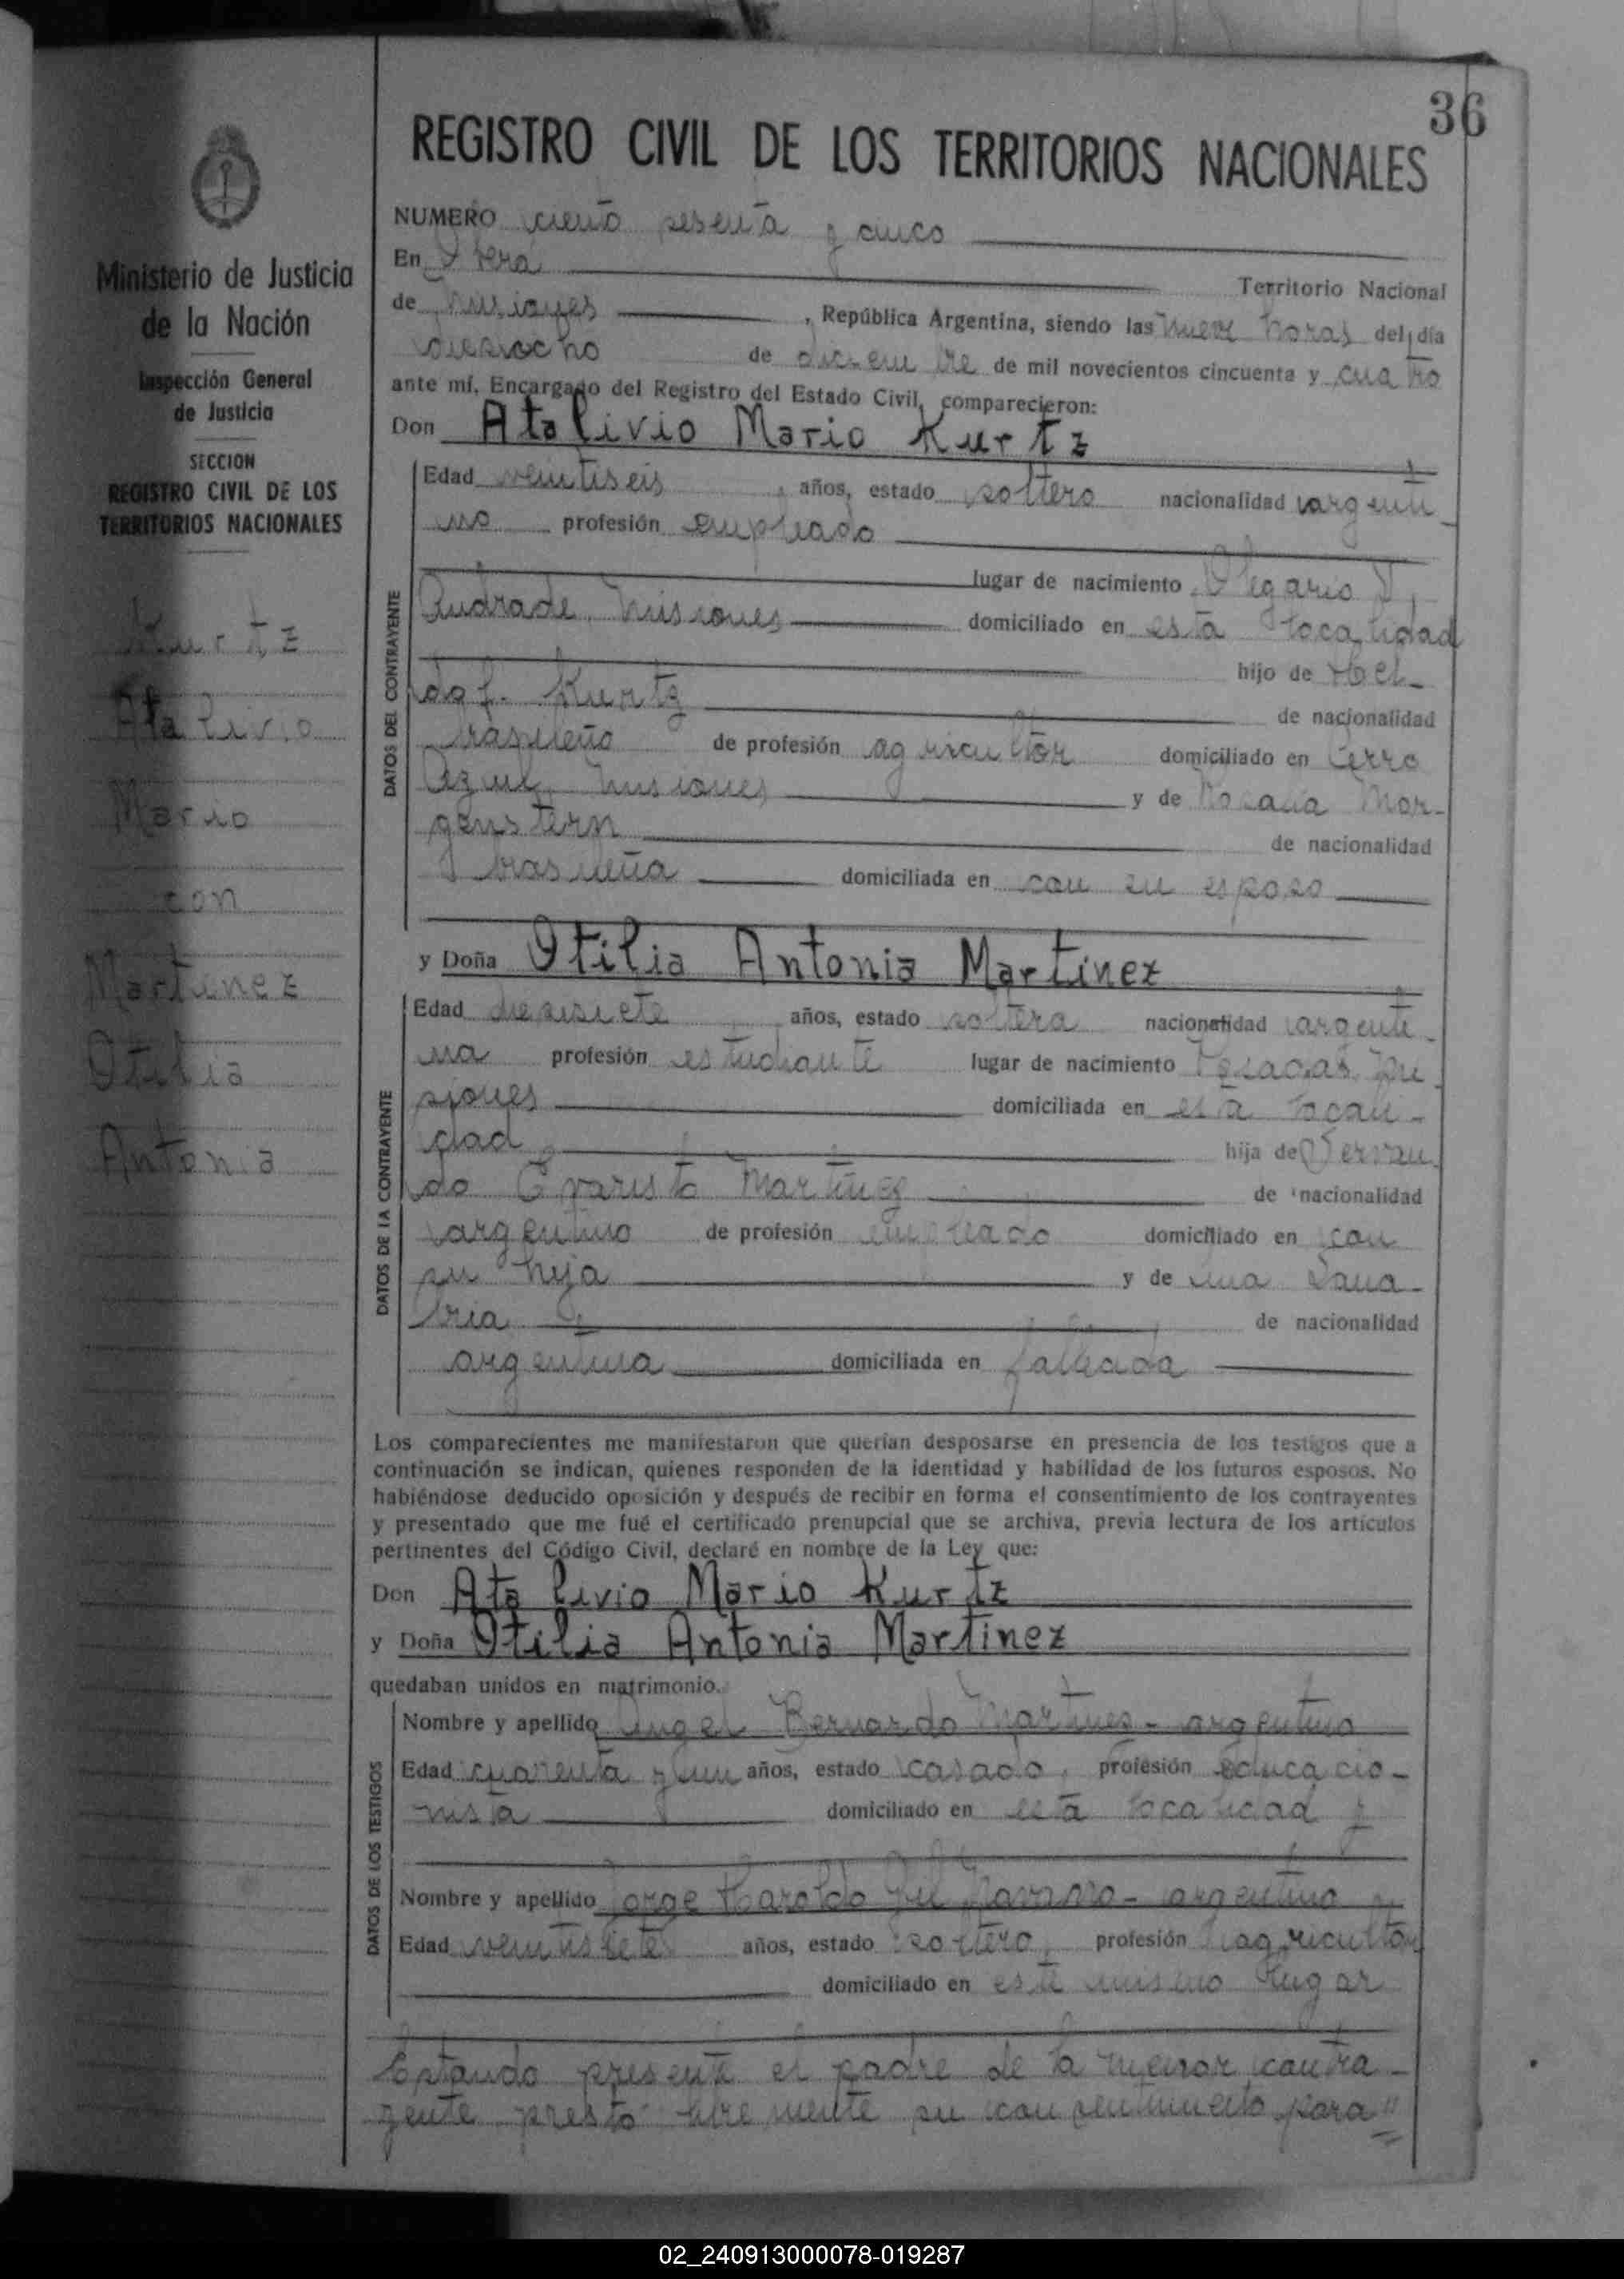 36
REGISTRO CIVIL DE LOS TERRITORIOS NACIONALES
Ministerio de Justicia
de la Nación
Inspección General
de Justicia
SECCION
REGISTRO CIVIL DE LOS
TERRITORIOS NACIONALES
Kurtz
Atalivio
Mario
con
Martinez
Otilia
Antonia
NUMERO ciento sesenta y cinco
En Oberá Territorio Nacional
de Misiones, República Argentina, siendo las nueve horas del día
dieciocho de diciembre de mil novecientos cincuenta y cuatro
ante mí, Encargado del Registro del Estado Civil, comparecieron:
Don Atalivio Mario Kurtz
DATOS DEL CONTRAYENTE
Edad veintiseis, años, estado soltero nacionalidad argenti-
no profesión empleado
lugar de nacimiento Olegario V.
Andrade, Misiones domiciliado en esta localidad
hijo de
Kurtz de nacionalidad
brasileño de profesión agricultor domiciliado en Cerro
Azul, Misiones y de Rosalia Mor-
genstern de nacionalidad
brasileña domiciliada en con su esposo
y Doña Otilia Antonia Martinez
DATOS DE LA CONTRAYENTE
Edad diecisiete años, estado soltera nacionalidad argenti-
na profesión estudiante lugar de nacimiento Posadas Mi-
siones domiciliada en esta locali-
dad hija de
do Evaristo Martinez de nacionalidad
argentino de profesión empleado domiciliado en con
su hija y de una
de nacionalidad
argentina domiciliada en fallecida
Los comparecientes me manifestaron que querían desposarse en presencia de los testigos que a
continuación se indican, quienes responden de la identidad y habilidad de los futuros esposos. No
habiéndose deducido oposición y después de recibir en forma el consentimiento de los contrayentes
y presentado que me fué el certificado prenupcial que se archiva, previa lectura de los artículos
pertinentes del Código Civil, declaré en nombre de la Ley que:
Don Atalivio Mario Kurtz
y Doña Otilia Antonia Martinez
quedaban unidos en matrimonio.
DATOS DE LOS TESTIGOS
Nombre y apellido Angel Bernardo Martinez - argentino
Edad cuarenta y un años, estado casado, profesión educacio-
nista domiciliado en esta localidad y
Nombre y apellido Jorge Haroldo Gil Navarro - argentino
Edad veintisiete años, estado soltero, profesión agricultor
domiciliado en este mismo lugar
Estando presente el padre de la menor contra-
yente prestó libremente su consentimiento para"
02_240913000078-019287